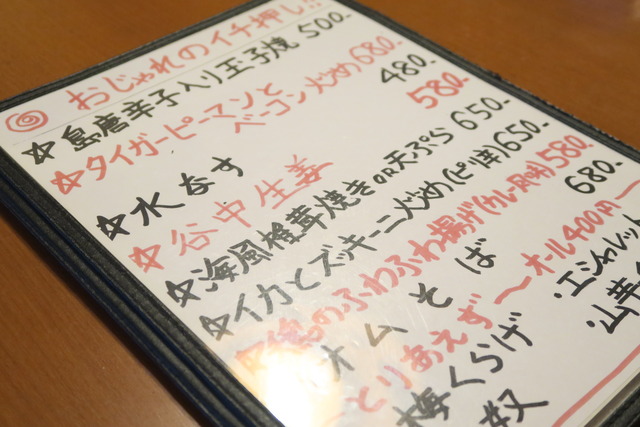 おじゃれのイチ押し!!
☆島唐辛子入り玉子焼 500-
☆タイガーピーマンと
ベーコン炒め 680-
☆水なす 480-
☆谷中生姜 580-
☆海風椎茸焼き or 天ぷら 650-
☆イカとズッキーニ炒め(ピリ辛) 650-
のふわふわ揚げ(カレー風味) 580-
オムそば 680-
とりあえず〜オール400円〜
梅くらげ ・エシャレット